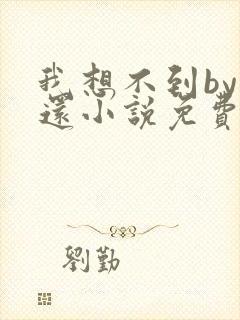 我想不到by
還小說免費
劉勤